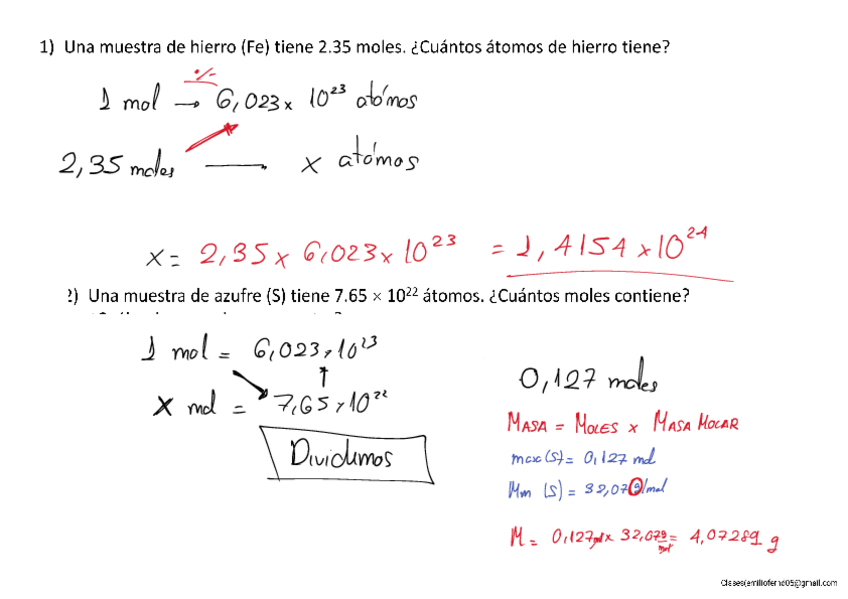 1) Una muestra de hierro (Fe) tiene 2.35 moles. ¿Cuántos átomos de hierro tiene?
1 mol → 6,023 x 10²³ atómos
2,35 moles → x atómos
x = 2,35 x 6,023 x 10²³ = 1,4154 x 10²⁴
2) Una muestra de azufre (S) tiene 7.65 × 10²² átomos. ¿Cuántos moles contiene?
1 mol = 6,023 x 10²³
X mol = 7,65 x 10²²
Dividimos
0,127 moles
MASA = MOLES x MASA MOLAR
(S) = 0,127 mol
Mm (S) = 32,07 g/mol
M = 0,127 mol x 32,07 g/mol = 4,07289 g